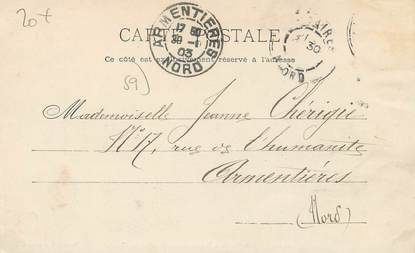 20+
CARTE POSTALE
ARMENTIERES
17 30
30 -1
03
NORD
30
NORD
Ce côté est exclusivement réservé à l'adresse
59)
Mademoiselle Jeanne Chérigié
N°17, rue de l'humanité
Armentières
(Nord)